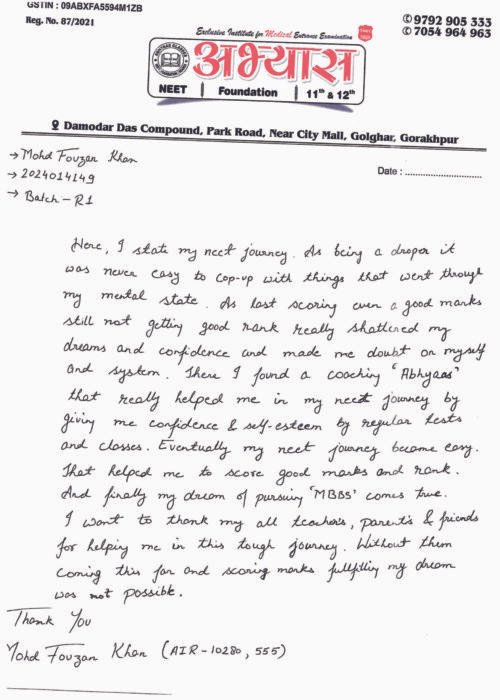 GSTIN : 09ABXFA5594M1ZB
Reg. No. 87/2021
Exclusive Institute for Medical Entrance Examination
9792 905 333
7054 964 963
अभ्यास
NEET | Foundation | 11th & 12th
Damodar Das Compound, Park Road, Near City Mall, Golghar, Gorakhpur
→ Mohd Fouzan Khan
→ 2024014149
→ Batch - R1
Date : ..............................
Here, I state my neet journey. As being a droper it
was never easy to cop-up with things that went through
my mental state. As last scoring even a good marks
still not getting good rank really shattered my
dreams and confidence and made me doubt on myself
and system. There I found a coaching 'Abhyaas'
that really helped me in my neet journey by
giving me confidence & self-esteem by regular tests
and classes. Eventually my neet journey became easy.
That helped me to score good marks and rank.
And finally my dream of pursuing 'MBBS' comes true.
I want to thank my all teachers, parents & friends
for helping me in this tough journey. Without them
coming this far and scoring marks fullfilling my dream
was not possible.
Thank You
Mohd Fouzan Khan (AIR-10280, 555)